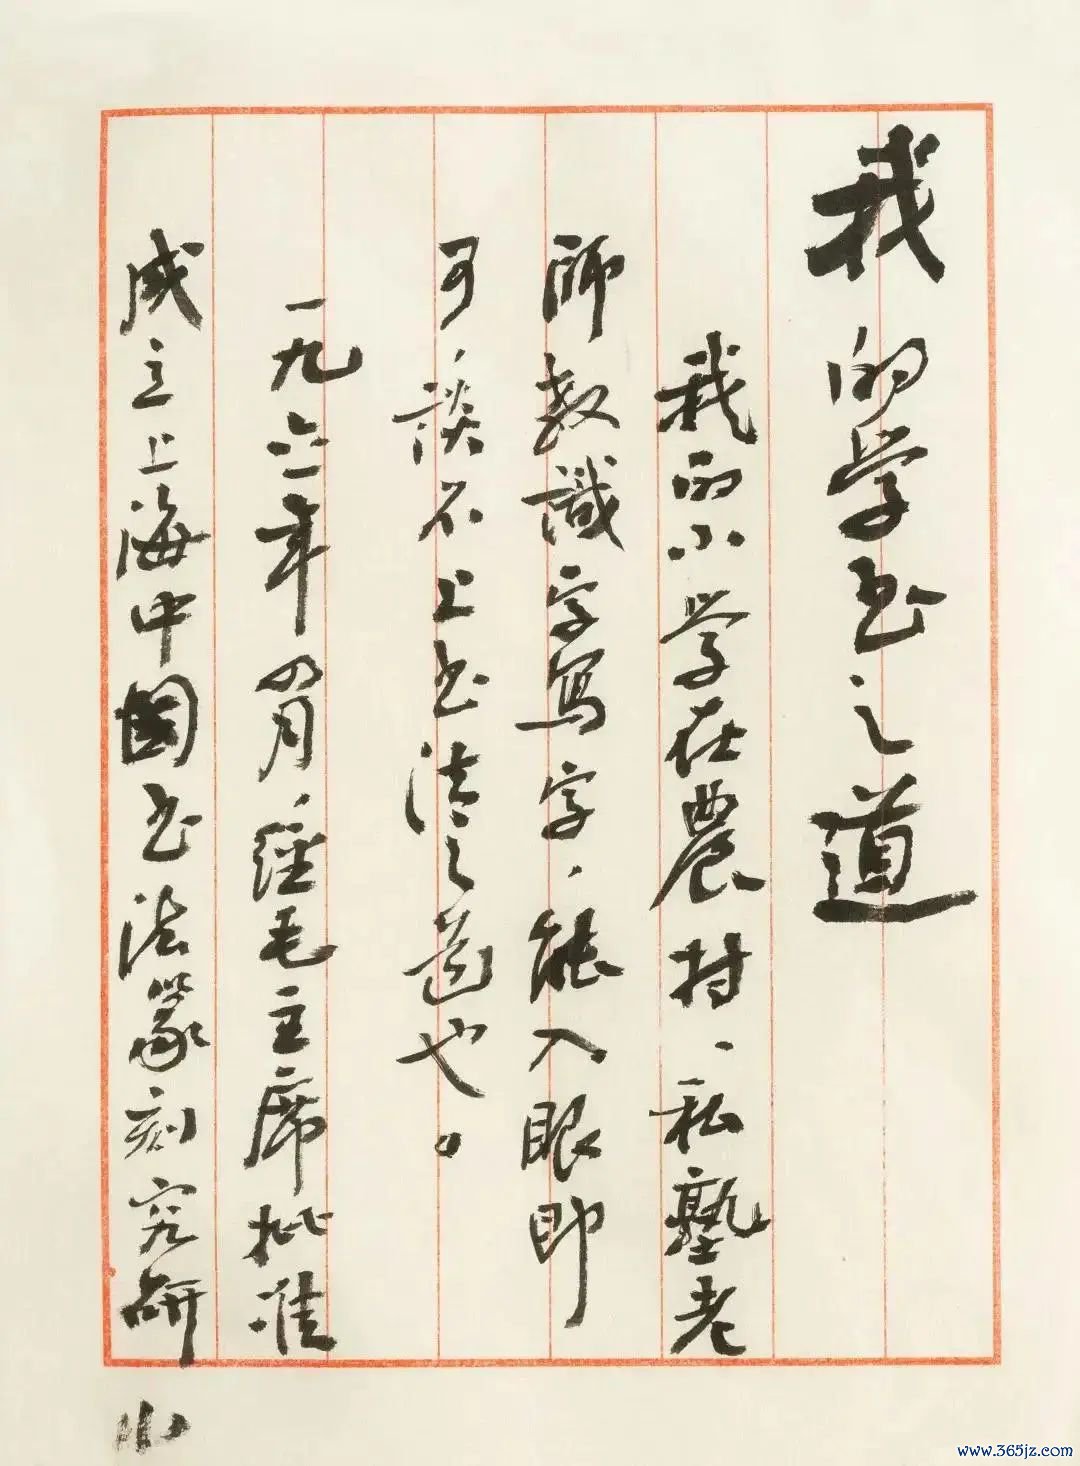 我的学书之道
我的小学在農村、私塾老
師教識字寫字、能入眼即
可、談不上书法之道也。
一九六一年四月、經毛主席批准
成立上海中國书法篆刻究研
www.365jz.com